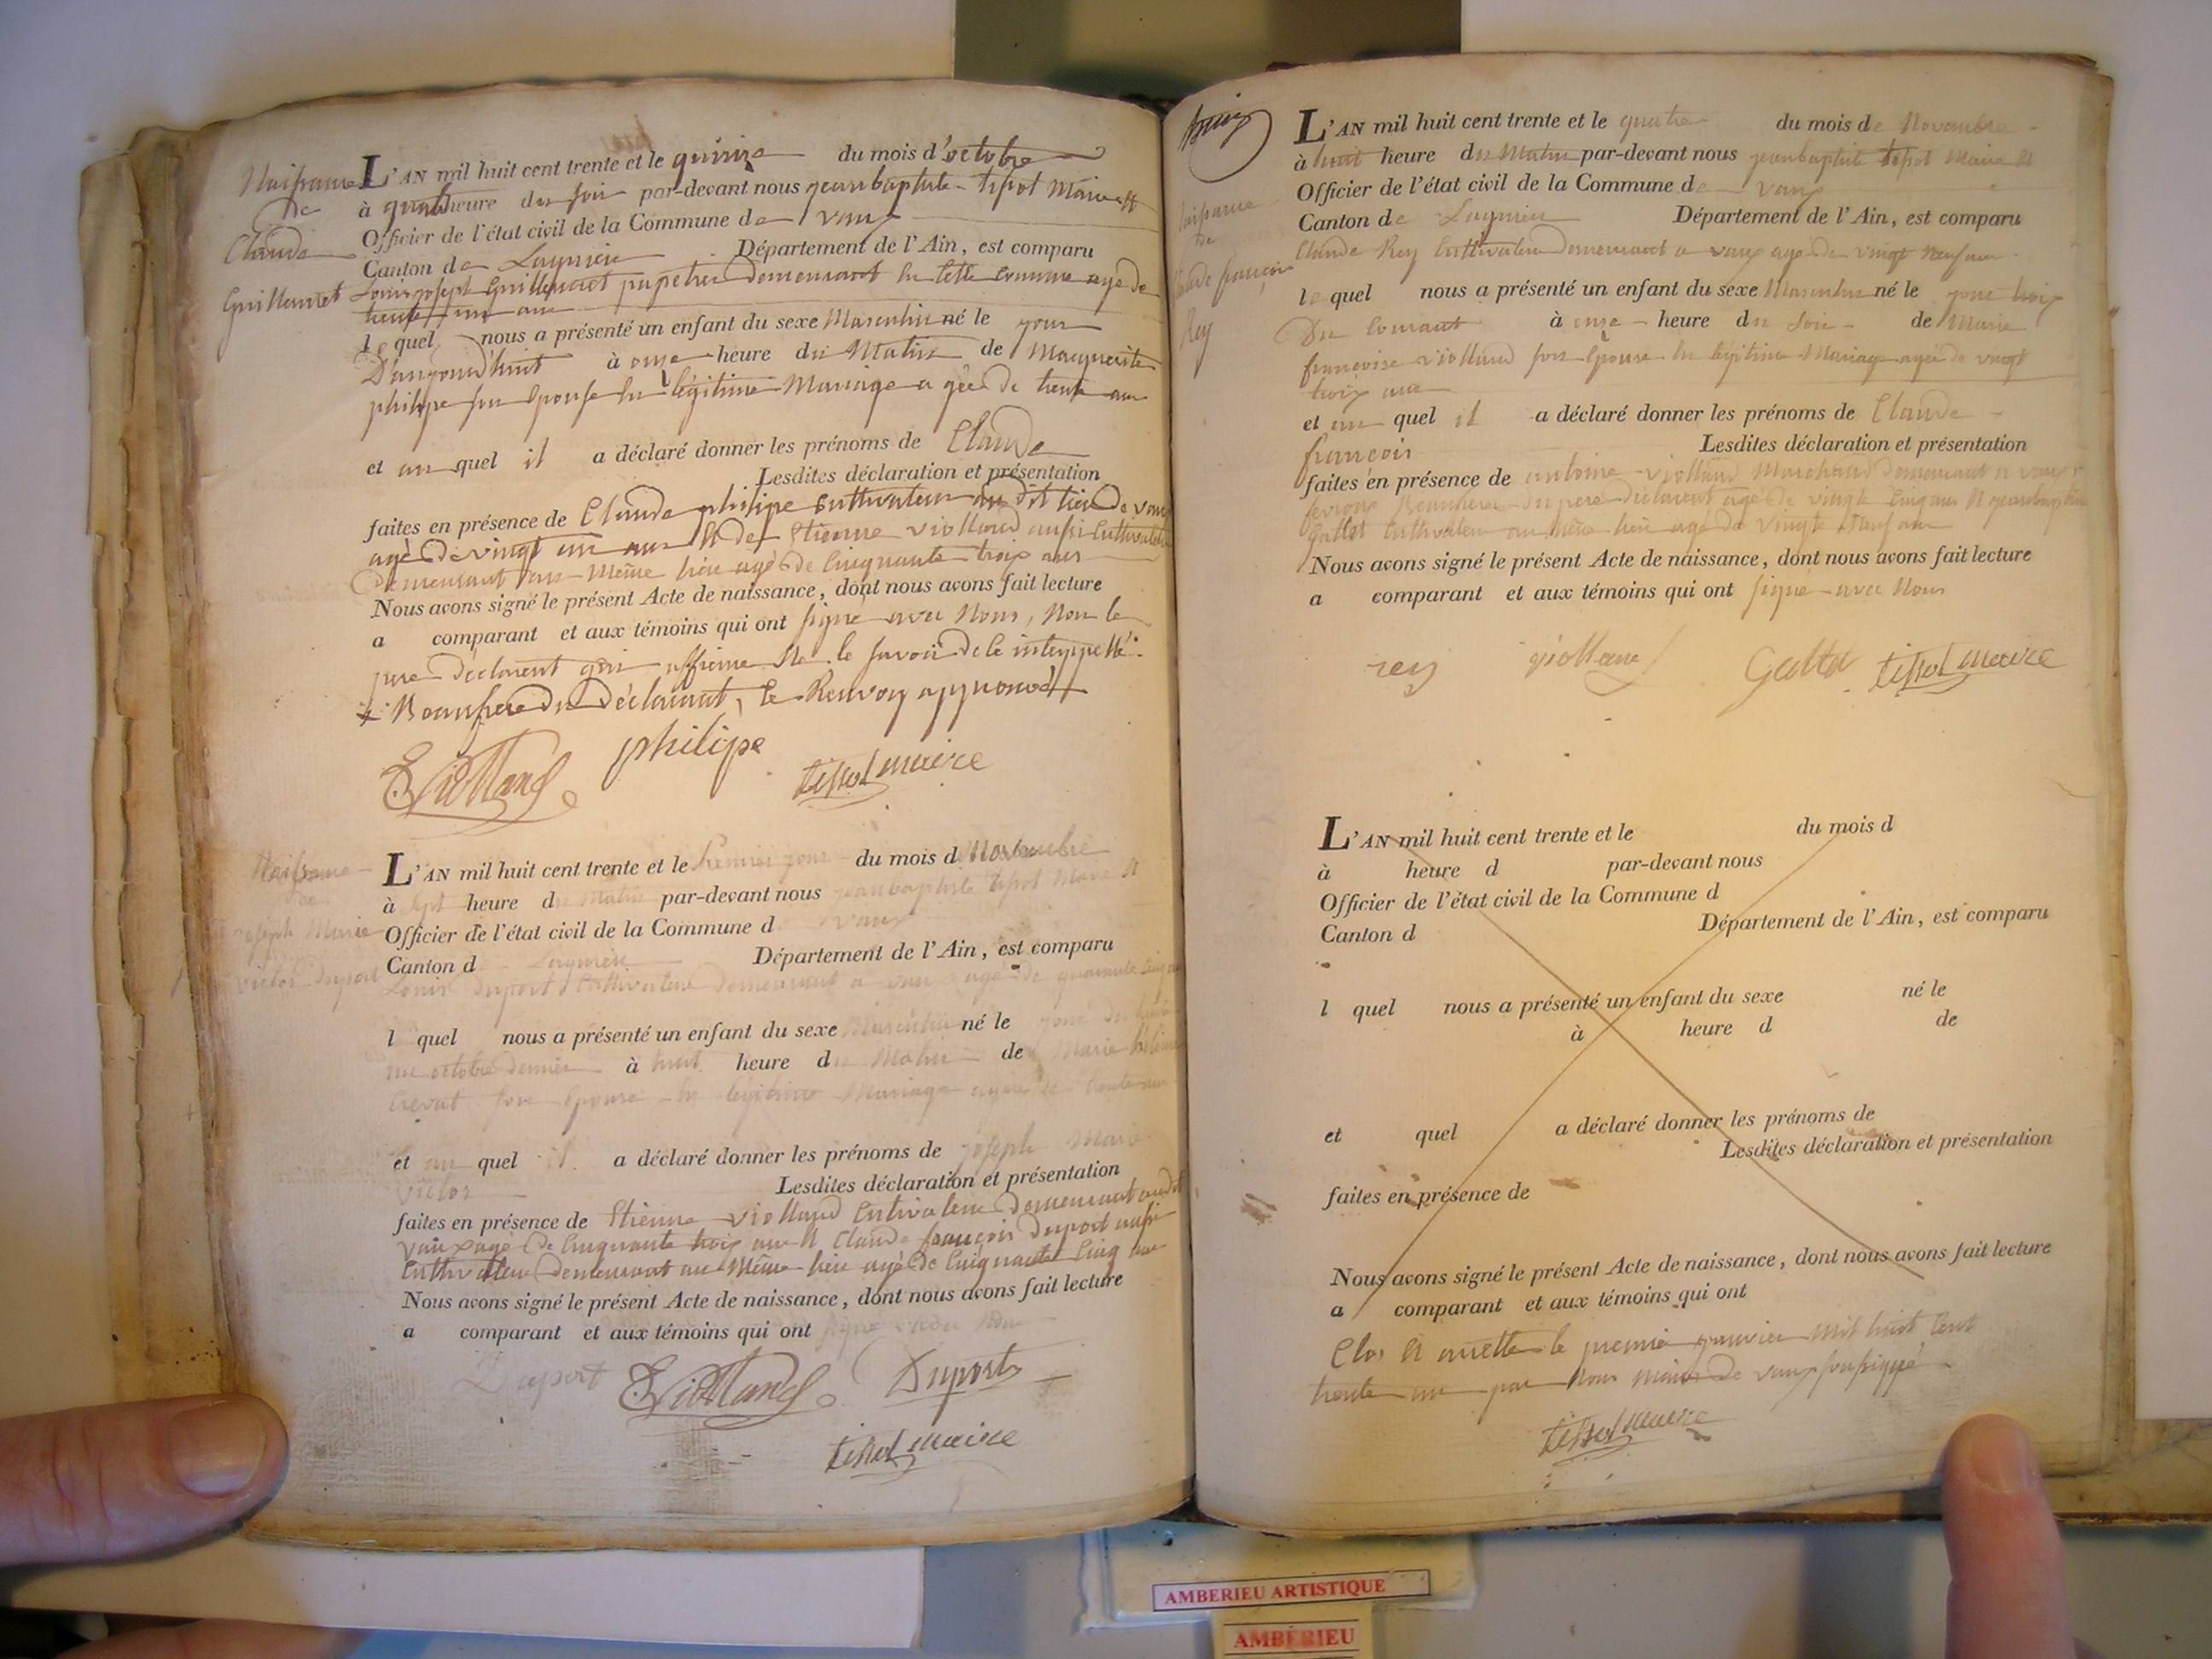 Naissance
de
Claude
Guillermet
L'AN mil huit cent trente et le quinze du mois d'octobre
à quatre heure du soir par-devant nous jean baptiste tissot Maire et
Officier de l'état civil de la Commune de vaux
Canton de Lagnieu Département de l'Ain, est comparu
Louis joseph Guillermet papetier demeurant en cette commune agé de
trente un ans
lequel nous a présenté un enfant du sexe Masculin né le jour
D'aujourd'huit à onze heure du Matin de Marguerite
philipe son Epouse en légitime Mariage agée de trente ans
et au quel il a déclaré donner les prénoms de Claude
Lesdites déclaration et présentation
faites en présence de Claude philipe Cultivateur au dit lieu de vaux
agé de vingt un ans et de Etienne violland aussi Cultivateur
Demeurant au Même lieu agé de Cinquante trois ans
Nous avons signé le présent Acte de naissance, dont nous avons fait lecture
a comparant et aux témoins qui ont signé avec Nous, Non le
pere declarent de le interpellé
Beaufrere du déclarant, le Renvoy approuvé
E. Violland philipe tissot maire
Naissance
de
joseph Marie
victor Duport
L'AN mil huit cent trente et le premier jour du mois d Novembre
à sept heure du Matin par-devant nous jean baptiste tissot Maire et
Officier de l'état civil de la Commune d vaux
Canton d Lagnieu Département de l'Ain, est comparu
Louis Duport Cultivateur demeurant a vaux agé de quarante Cinq
l quel nous a présenté un enfant du sexe Masculin né le jour
octobre dernier à huit heure du Matin de Marie
son Epouse en légitime Mariage agée de trente
et au quel il a déclaré donner les prénoms de joseph Marie
victor
Lesdites déclaration et présentation
faites en présence de Etienne violland Cultivateur Demeurant audit
vaux agé de Cinquante trois ans et Claude françois Duport aussi
Cultivateur Demeurant au Même lieu agé de Cinquante Cinq ans
Nous avons signé le présent Acte de naissance, dont nous avons fait lecture
a comparant et aux témoins qui ont signé avec Nous
Duport E. Violland Duport
tissot maire
Naissance
de
Claude françois
Rey
L'AN mil huit cent trente et le quatre du mois de Novembre
à huit heure du Matin par-devant nous jean baptiste tissot Maire et
Officier de l'état civil de la Commune de vaux
Canton de Lagnieu Département de l'Ain, est comparu
Claude Rey Cultivateur demeurant a vaux agé de vingt neuf ans
le quel nous a présenté un enfant du sexe Masculin né le jour trois
Du Courant à onze heure du Soir de Marie
françoise violland son Epouse en légitime Mariage agée de vingt
trois ans
et au quel il a déclaré donner les prénoms de Claude
françois
Lesdites déclaration et présentation
faites en présence de antoine violland Marchand demeurant a vaux
Beaufrere du pere déclarent agé de vingt Cinq ans et jean baptiste
Gallet Cultivateur au Même lieu agé de vingt Neuf ans
Nous avons signé le présent Acte de naissance, dont nous avons fait lecture
a comparant et aux témoins qui ont signé avec Nous
rey violland Gallet tissot maire
L'AN mil huit cent trente et le du mois d
à heure d par-devant nous
Officier de l'état civil de la Commune d
Canton d Département de l'Ain, est comparu
l quel nous a présenté un enfant du sexe né le
à heure d de
et quel a déclaré donner les prénoms de
Lesdites déclaration et présentation
faites en présence de
Nous avons signé le présent Acte de naissance, dont nous avons fait lecture
a comparant et aux témoins qui ont
Clos et arretté le premié janvier Mil huit Cent
trente un par Nous maire de vaux soussigné
tissot maire
AMBERIEU ARTISTIQUE
AMBÉRIEU